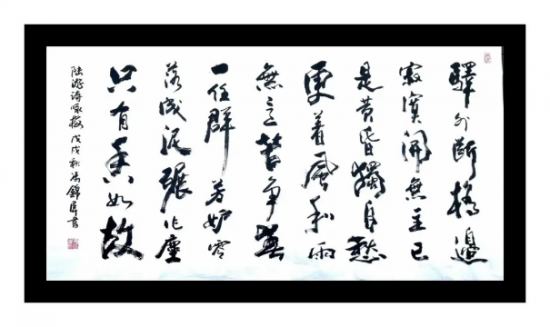 驛外斷橋邊
寂寞開無主已
是黃昏獨自愁
更着風和雨
無意苦爭春
一任群芳妒零
落成泥碾作塵
只有香如故
陸游詩咏梅 戊戌秋 錦 書